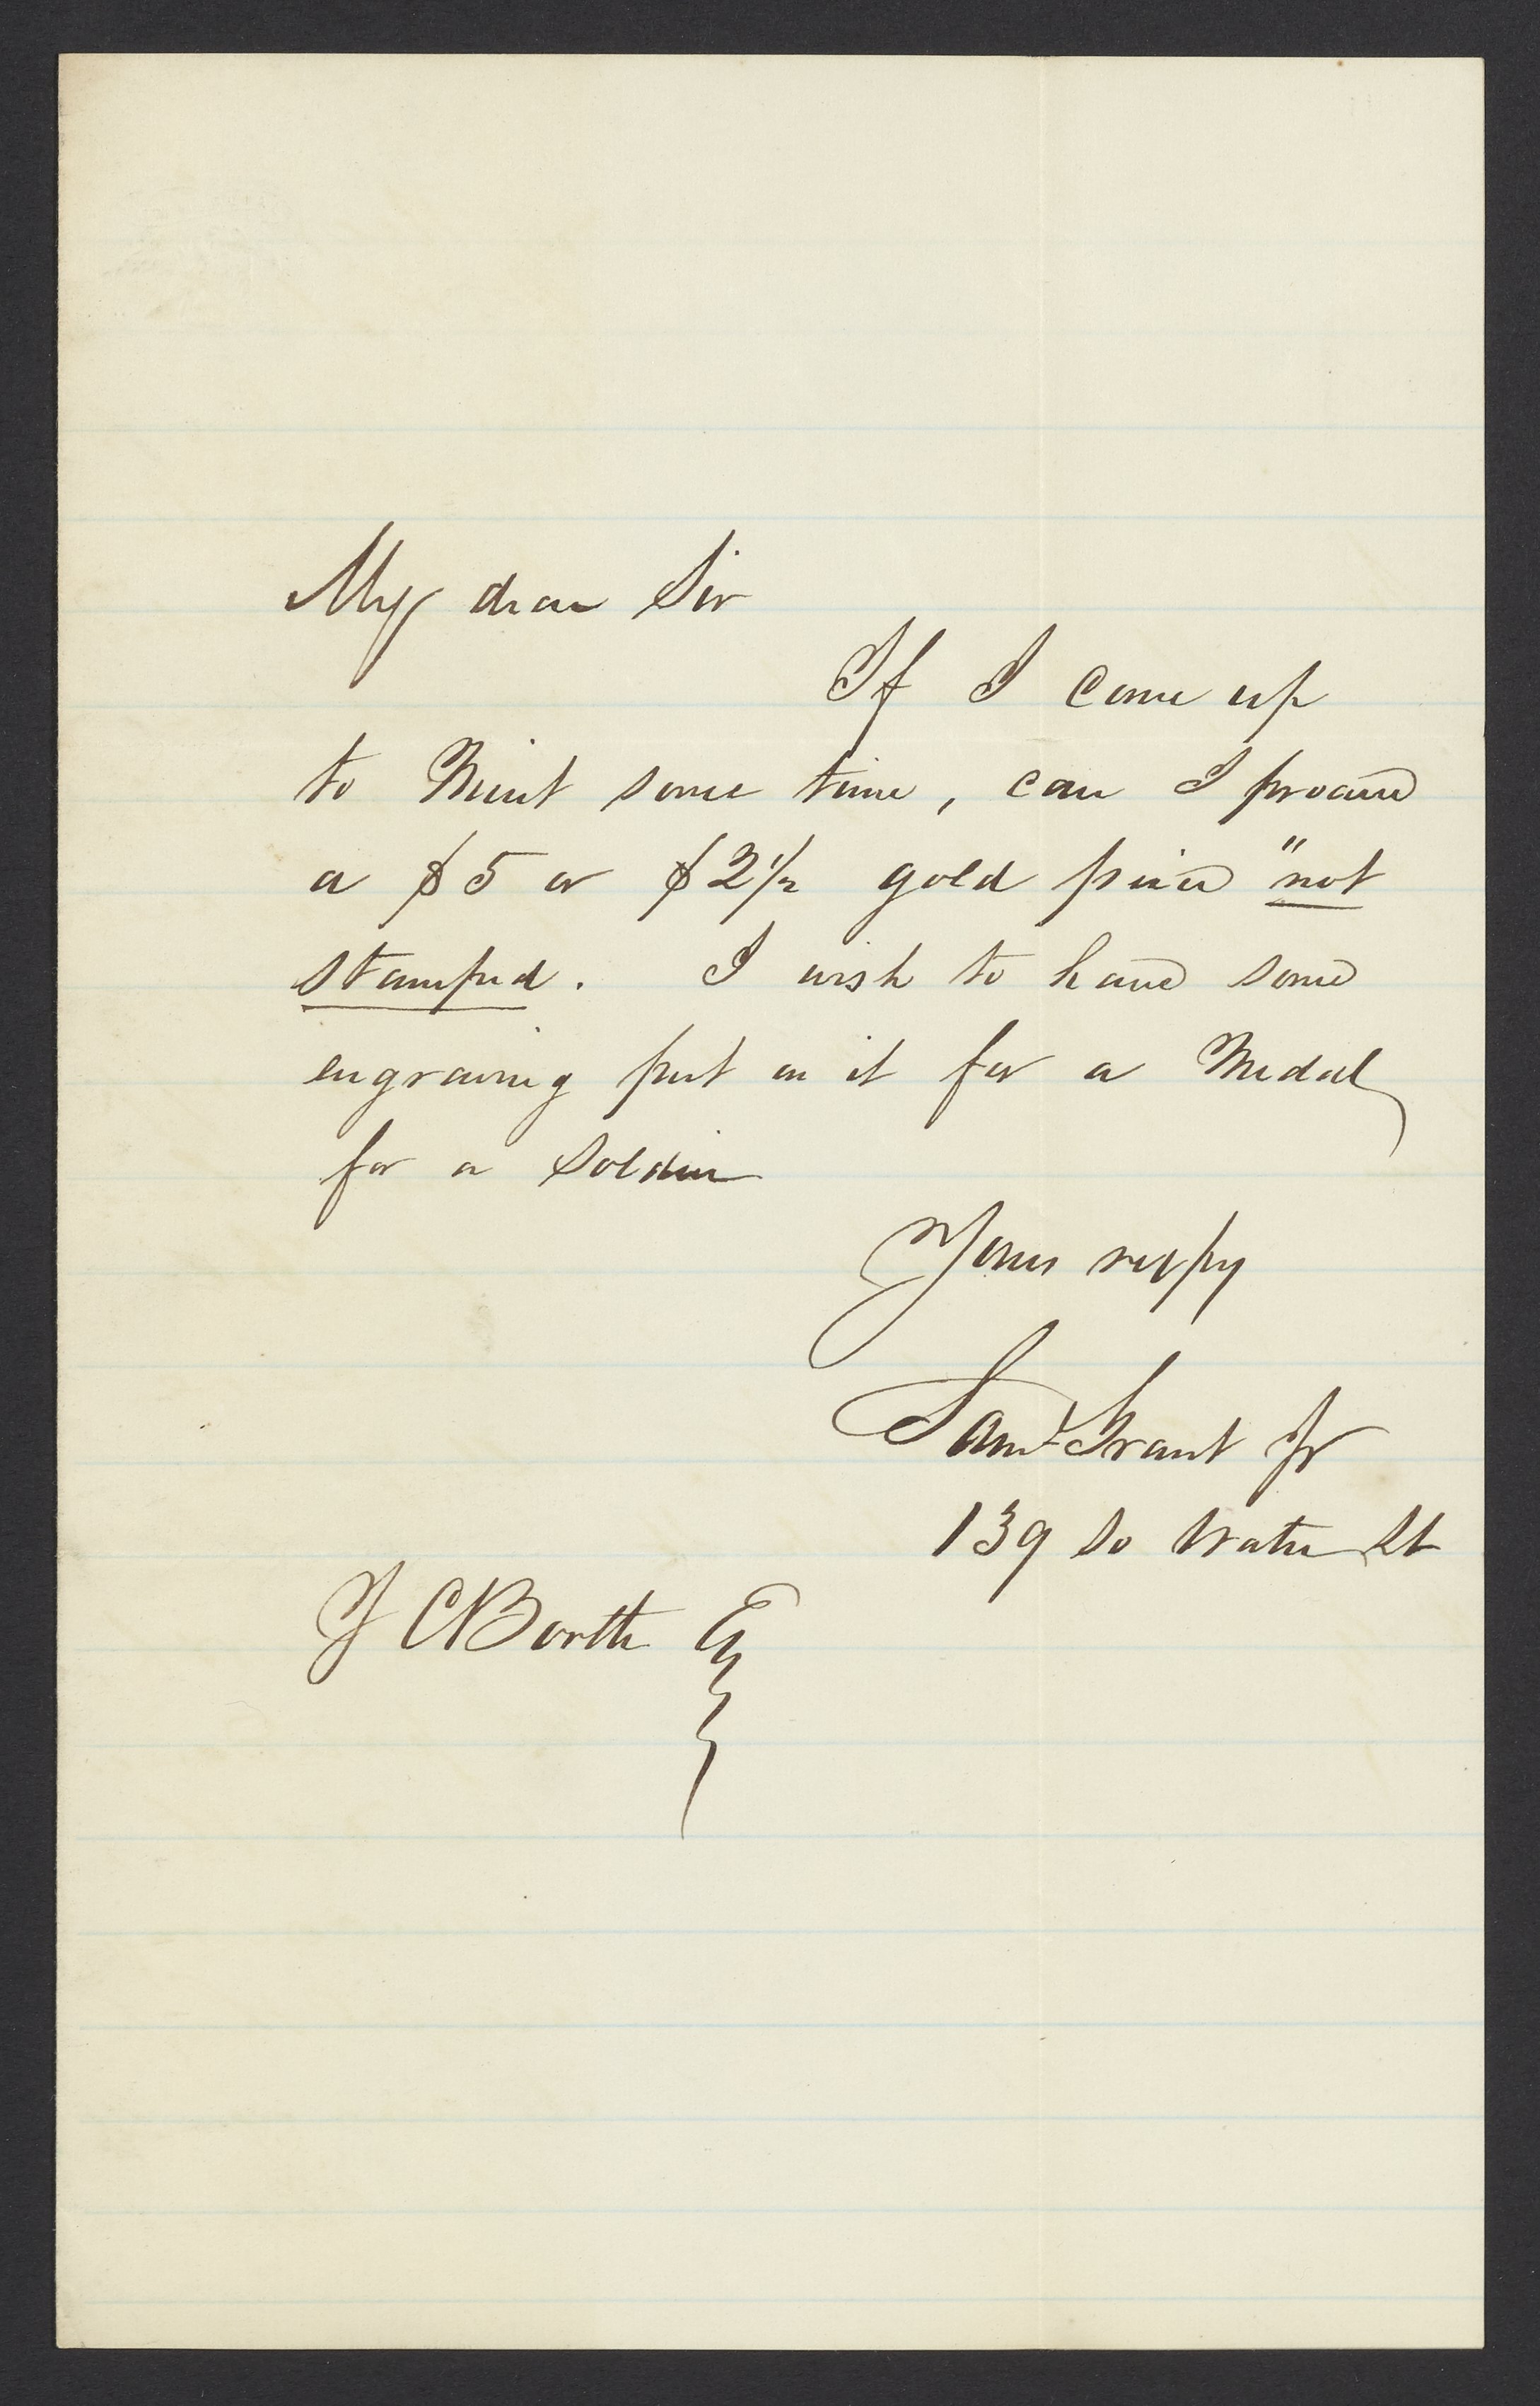 My dear Sir
If I come up
to Mint some time, can I procure
a $5 or $2 1/2 gold piece "not
stamped. I wish to have some
engraving put on it for a Medal
for a Soldier
Yours respy
Saml Grant Jr
139 So Water St
J C Booth Eq